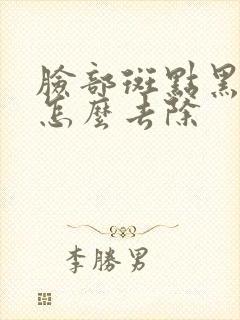 臉部斑點黑
怎麼去除
李勝男